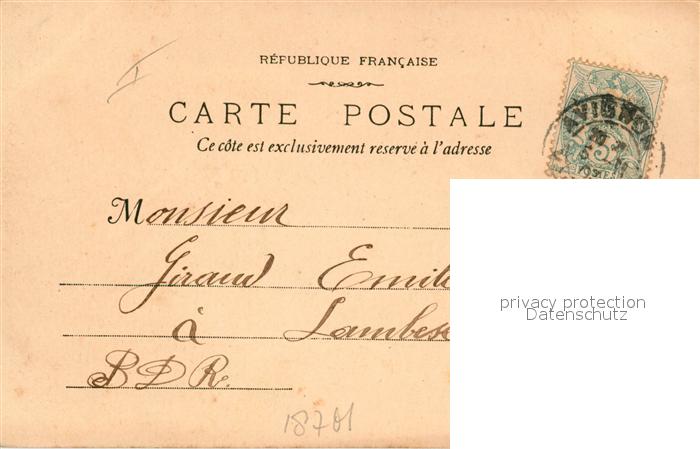 RÉPUBLIQUE FRANÇAISE
CARTE POSTALE
Ce côté est exclusivement reservé à l'adresse
AVIGNON
Monsieur
Giraud Emile
à Lambesc
BDR.
privacy protection
Datenschutz